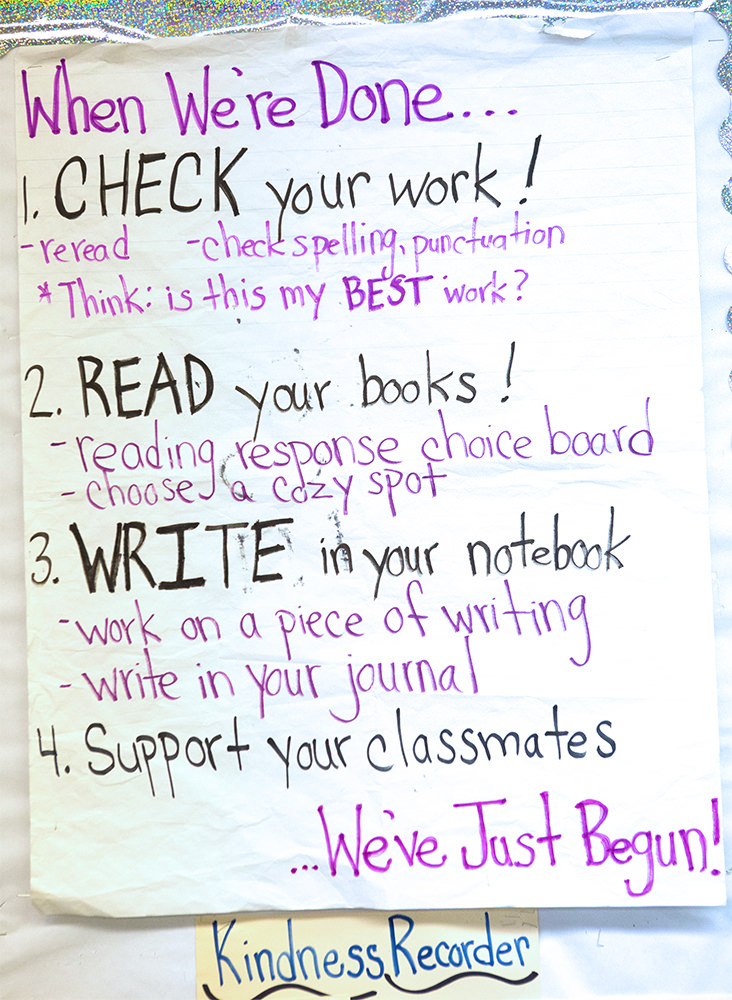 When We're Done...
1. CHECK your work!
-reread -check spelling, punctuation
*Think: is this my BEST work?
2. READ your books!
-reading response choice board
-choose a cozy spot
3. WRITE in your notebook
-work on a piece of writing
-write in your journal
4. Support your classmates
...We've Just Begun!
Kindness Recorder